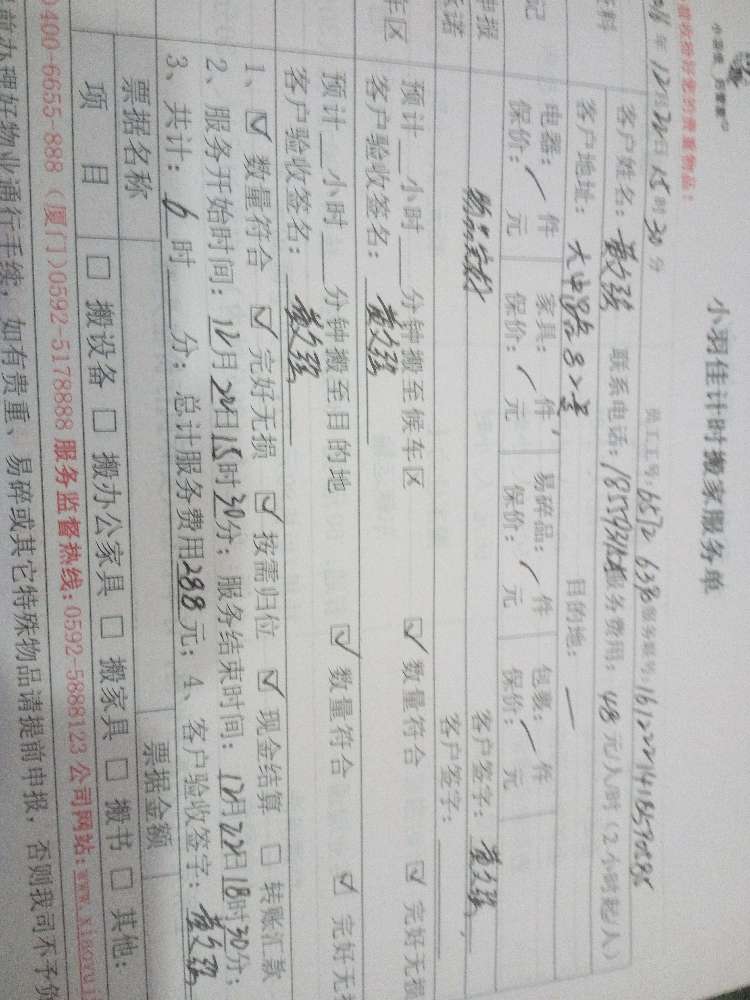 小羽佳计时搬家服务单
员工工号: 6572 638 服务账号:
年12月22日15时30分
客户姓名: 黄文强 联系电话: 服务费用: 48元/人/时(2小时起/人)
客户地址: 大中路82号 目的地: 一
电器: / 件 家具: / 件 易碎品: / 件 包裹: / 件
保价: 元 保价: / 元 保价: / 元 保价: 元
物品完好 客户签字: 黄文强
客户签字:
预计__小时__分钟搬至候车区 ☑ 数量符合 ☑ 完好无损
客户验收签名: 黄文强
预计__小时__分钟搬至目的地 ☑ 数量符合 ☑ 完好无
客户验收签名: 黄文强
1、☑ 数量符合 ☑ 完好无损 ☑ 按需归位 ☑ 现金结算 □ 转账汇款
2、服务开始时间: 12月22日15时30分; 服务结束时间: 12月22日18时30分;
3、共计: 6时__分; 总计服务费用288元; 4、客户验收签字: 黄文强
票据名称 票据金额
项 目 □ 搬设备 □ 搬办公家具 □ 搬家具 □ 搬书 □ 其他:
0400-6655-888 (厦门)0592-5178888 服务监督热线:0592-5888123 公司网站:www.xiaoyuj
前办理好物业通行手续,如有贵重、易碎或其它特殊物品请提前申报,否则我司不予